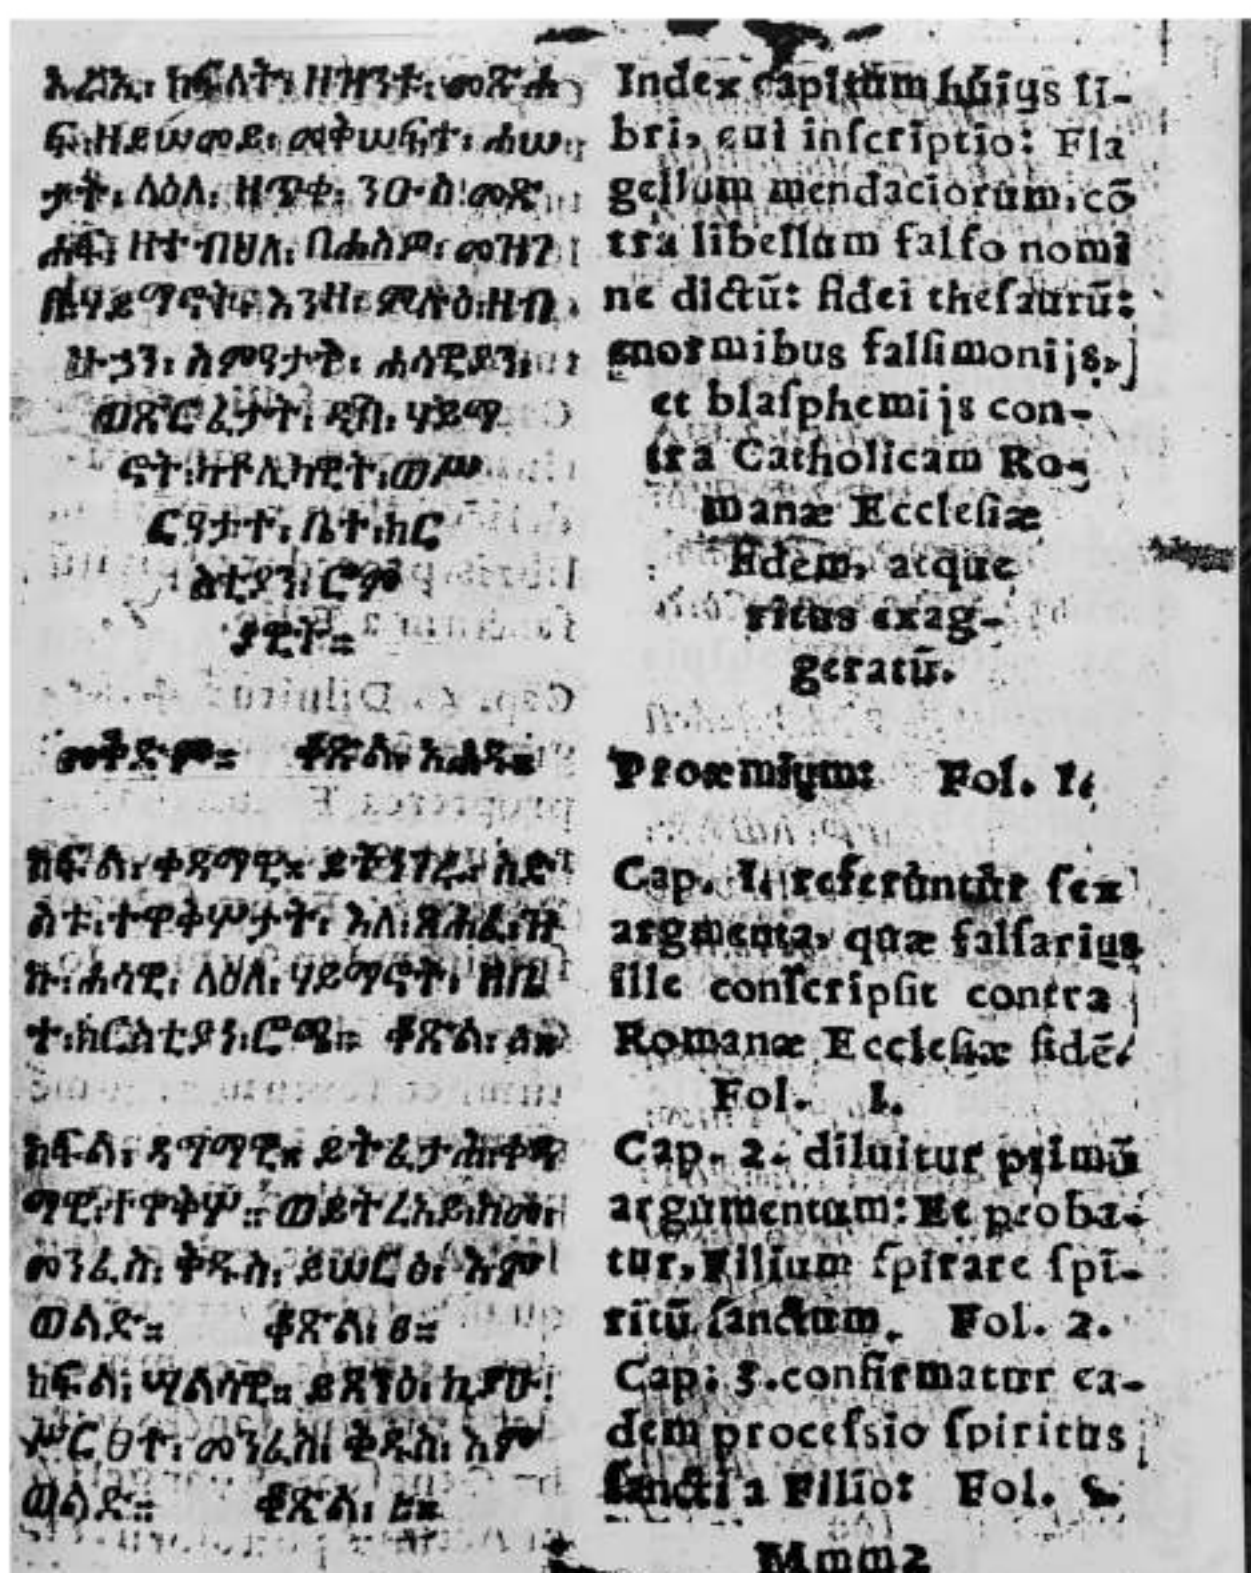 ክፍለት፡ ዘዝንቱ፡ መጽሐ
ፍ፡ዘይሠመይ፡ መቅሠፍተ፡ ሐሠ
ታት፡ ላዕለ፡ ዘጥቀ፡ ንኡስ፡መጽ
ሐፍ፡ ዘተብህለ፡ መዝገ
በ፡ሃይማኖት፡ እንዘ፡ ምሉዕ፡ዘብ
ዙኃን፡ ሐሳዊያን፡
ወጽርፈታት፡ ዲበ፡ ሃይማ
ኖት፡ካቶሊካዊት፡ወሥ
ርዓታተ፡ ቤተ፡ክር
ስቲያን፡ ሮም
ያዊት።
መቅድም። ቆጽል፡ አሐዱ።
ክፍል፡ ቀዳማዊ። ይትነገሩ፡ ስድ
ስቱ፡ተዋቅሦታት፡ እለ፡ጸሐፈ፡ዝ
ኩ፡ሐሳዊ፡ ላዕለ፡ ሃይማኖት፡ ዘቤ
ተ፡ክርስቲያን፡ሮሜ። ቆጽል፡ ፩።
ክፍል፡ ዳግማዊ። ይትፈታሕ፡ቀዳ
ማዊ፡ተዋቅሦ። ወይትረአይ፡ከመ፡
መንፈስ፡ ቅዱስ፡ ይሠርፅ፡ እም
ወልድ። ቆጽል፡ ፪።
ክፍል፡ ሣልሳዊ። ይጸንዕ፡ ኪያሁ፡
ሥርፀተ፡ መንፈስ፡ ቅዱስ፡ እም
ወልድ። ቆጽል፡ ፭።
Index capitum huius li-
bri, cui inſcriptio: Fla
gellum mendaciorum, cō
tra libellum falſo nomi
ne dictū: fidei theſaurū:
enormibus falſimonijs,
et blaſphemijs con-
tra Catholicam Ro-
manæ Eccleſiæ
fidem, atque
ritus exag-
geratū.
Proœmium: Fol. 1.
Cap. 1. referuntur ſex
argmenta, quæ falſarius
ille conſcripſit contra
Romanæ Eccleſiæ fidē.
Fol. 1.
Cap. 2. diluitur primū
argumentum: Et proba-
tur, Filium ſpirare ſpi-
ritū ſanctum. Fol. 2.
Cap: 3. confirmatur ea-
dem proceſsio ſpiritus
ſancti a Filio: Fol. 5.
Mmm2